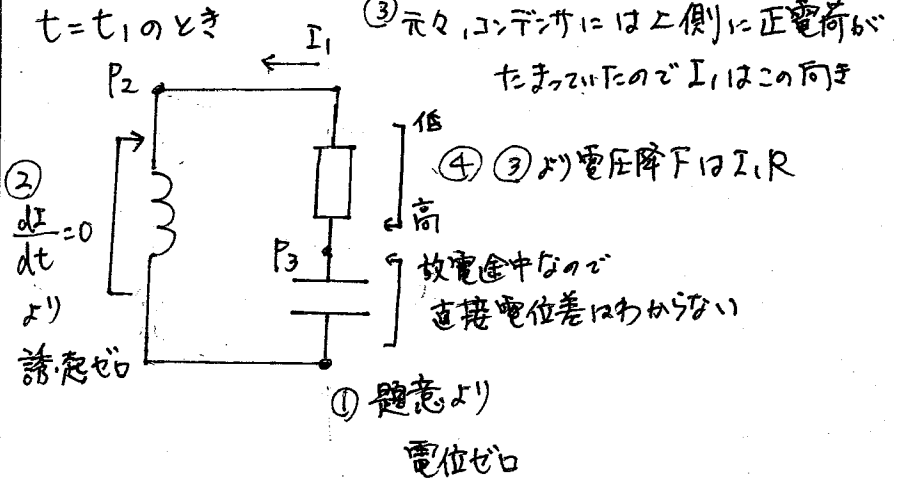 t=t₁のとき
③元々,コンデンサには上側に正電荷が
たまっていたので I₁はこの向き
I₁
P₂
低
④ ③より電圧降下はI₁R
高
②
dI/dt=0
より
誘起ゼロ
P₃
放電途中なので
直接電位差はわからない
① 題意より
電位ゼロ